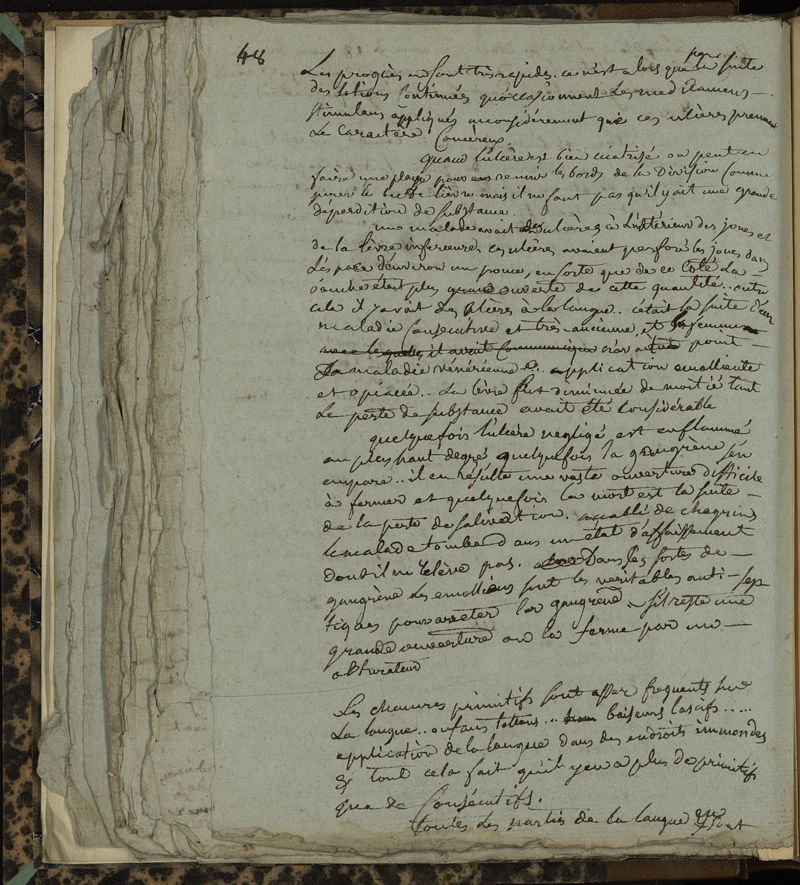 48
Les progrès en sont très rapides. ce n'est alors que par la suite
des lotions continuées qu'occasionnent les medicamens
stimulans appliqués inconsidérement que ces ulcères prennent
Le Caractère Cancéreux.
quand l'ulcère est bien cicatrisé on peut en
faire une playe pour en reunir les bords de la Division Comme
pour le bec de lièvre mais il ne faut pas qu'il y ait une grande
déperdition de substance.
une malade avait des ulcères à L'intérieur des joues et
de la lèvre inferieure ces ulcères avaient perforé les joues dans
L'espace d'environ un pouce, en sorte que de ce Côté La
bouche étant plus grande ouverte de cette quantité.. outre
cela il y avait des ulcères à la langue.. c'était la suite d'une
maladie Consécutive et très-ancienne, et la femme
avec lequel il avait Communiqué n'en avait point
La maladie vénérienne.. application emolliente
et opiacée.. La lèvre fut diminuée de moitié tant
La perte de substance avait été Considérable
quelquefois l'ulcère negligé est enflammé
au plus haut degré quelquefois la gangrène s'en
empare.. il en résulte une vaste ouverture difficile
à fermer et quelquefois la mort est la suite
de la perte de salivation. accablé de chagrins
le malade tombe dans un état d'affaissement
dont il ne relève pas. Dans les sortes de
gangrène les emolliens sont les veritables anti-sep
tiques pour arreter la gangrene. s'il reste une
grande ouverture on la ferme par un
obturateur
Les chancres primitifs sont assez frequents sur
La langue.. enfans tettans... baisers lascifs.....
application de la langue dans des endroits immondes
& tout cela fait qu'il y en a plus de primitifs
que de Consécutifs.
toutes Les parties de la langue sont